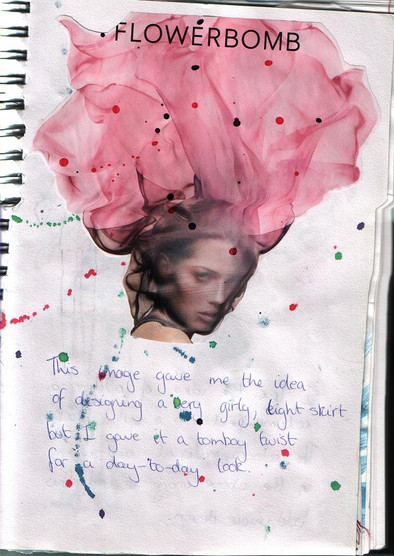 FLOWERBOMB
This image gave me the idea
of designing a very girly, tight skirt
but I gave it a tomboy twist
for a day-to-day look.